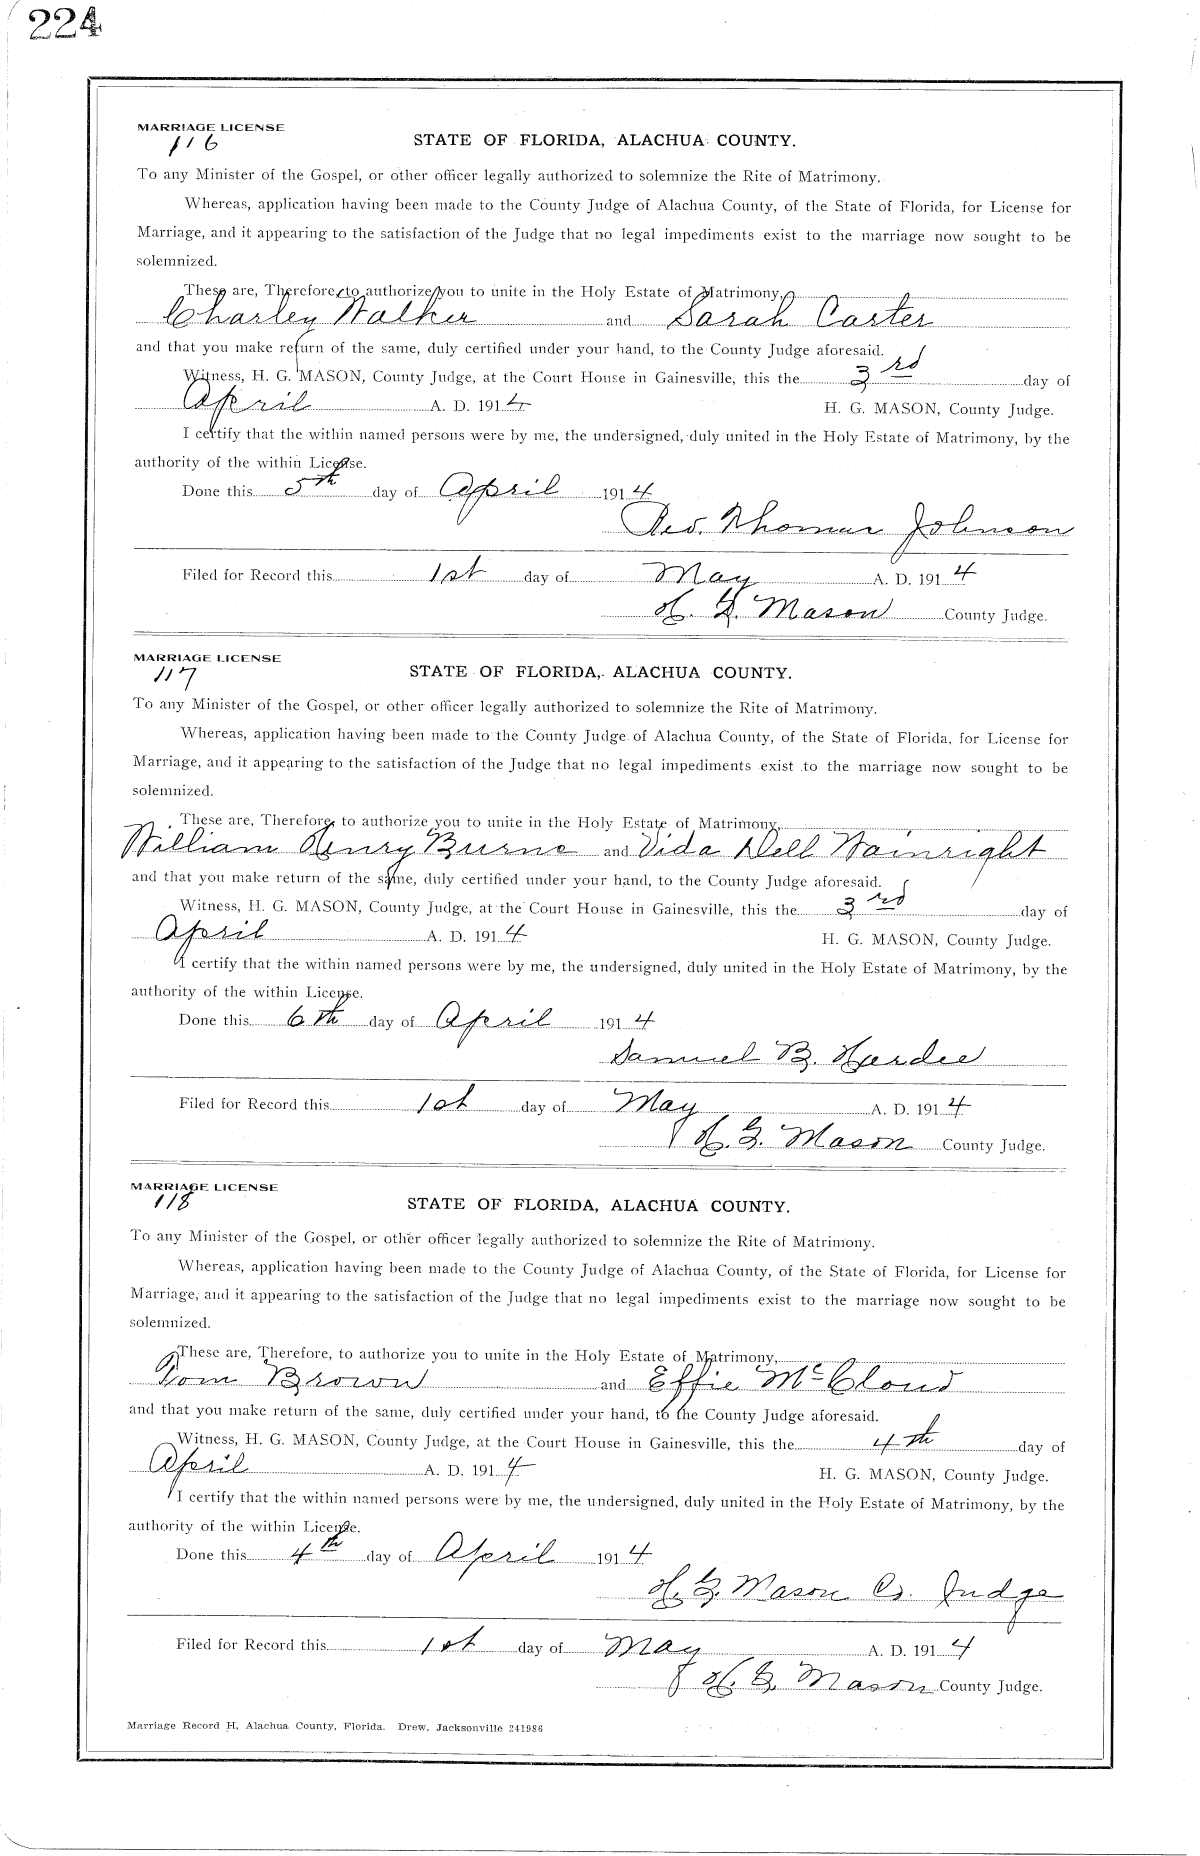 224
MARRIAGE LICENSE
116
STATE OF FLORIDA, ALACHUA COUNTY.
To any Minister of the Gospel, or other officer legally authorized to solemnize the Rite of Matrimony.
Whereas, application having been made to the County Judge of Alachua County, of the State of Florida, for License for
Marriage, and it appearing to the satisfaction of the Judge that no legal impediments exist to the marriage now sought to be
solemnized.
These are, Therefore, to authorize you to unite in the Holy Estate of Matrimony,
Charley Walker and Sarah Carter
and that you make return of the same, duly certified under your hand, to the County Judge aforesaid.
Witness, H. G. MASON, County Judge, at the Court House in Gainesville, this the 3rd day of
April A. D. 1914 H. G. MASON, County Judge.
I certify that the within named persons were by me, the undersigned, duly united in the Holy Estate of Matrimony, by the
authority of the within License.
Done this 5th day of April 1914
Rev. Thomas Johnson
Filed for Record this 1st day of May A. D. 1914
H. G. Mason County Judge.
MARRIAGE LICENSE
117
STATE OF FLORIDA, ALACHUA COUNTY.
To any Minister of the Gospel, or other officer legally authorized to solemnize the Rite of Matrimony.
Whereas, application having been made to the County Judge of Alachua County, of the State of Florida, for License for
Marriage, and it appearing to the satisfaction of the Judge that no legal impediments exist to the marriage now sought to be
solemnized.
These are, Therefore, to authorize you to unite in the Holy Estate of Matrimony,
William Henry Burns and Vida Dell Wainright
and that you make return of the same, duly certified under your hand, to the County Judge aforesaid.
Witness, H. G. MASON, County Judge, at the Court House in Gainesville, this the 3rd day of
April A. D. 1914 H. G. MASON, County Judge.
I certify that the within named persons were by me, the undersigned, duly united in the Holy Estate of Matrimony, by the
authority of the within License.
Done this 6th day of April 1914
Samuel B. Hardee
Filed for Record this 1st day of May A. D. 1914
H. G. Mason County Judge.
MARRIAGE LICENSE
118
STATE OF FLORIDA, ALACHUA COUNTY.
To any Minister of the Gospel, or other officer legally authorized to solemnize the Rite of Matrimony.
Whereas, application having been made to the County Judge of Alachua County, of the State of Florida, for License for
Marriage, and it appearing to the satisfaction of the Judge that no legal impediments exist to the marriage now sought to be
solemnized.
These are, Therefore, to authorize you to unite in the Holy Estate of Matrimony,
Tom Brown and Effie McCloud
and that you make return of the same, duly certified under your hand, to the County Judge aforesaid.
Witness, H. G. MASON, County Judge, at the Court House in Gainesville, this the 4th day of
April A. D. 1914 H. G. MASON, County Judge.
I certify that the within named persons were by me, the undersigned, duly united in the Holy Estate of Matrimony, by the
authority of the within License.
Done this 4th day of April 1914
H. G. Mason Co. Judge
Filed for Record this 1st day of May A. D. 1914
H. G. Mason County Judge.
Marriage Record H, Alachua County, Florida. Drew, Jacksonville 241986